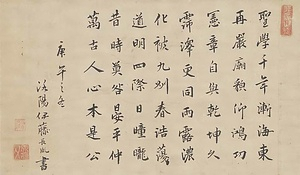 聖學千年漸海東
再嚴廟貌仰鴻功
憲章自與乾坤久
霈澤更同雨露濃
化被九則春浩蕩
道明四際日曈曨
昔時奠谷日安平仲
萬古人心本是公
庚午之冬
洛陽伊藤長胤書